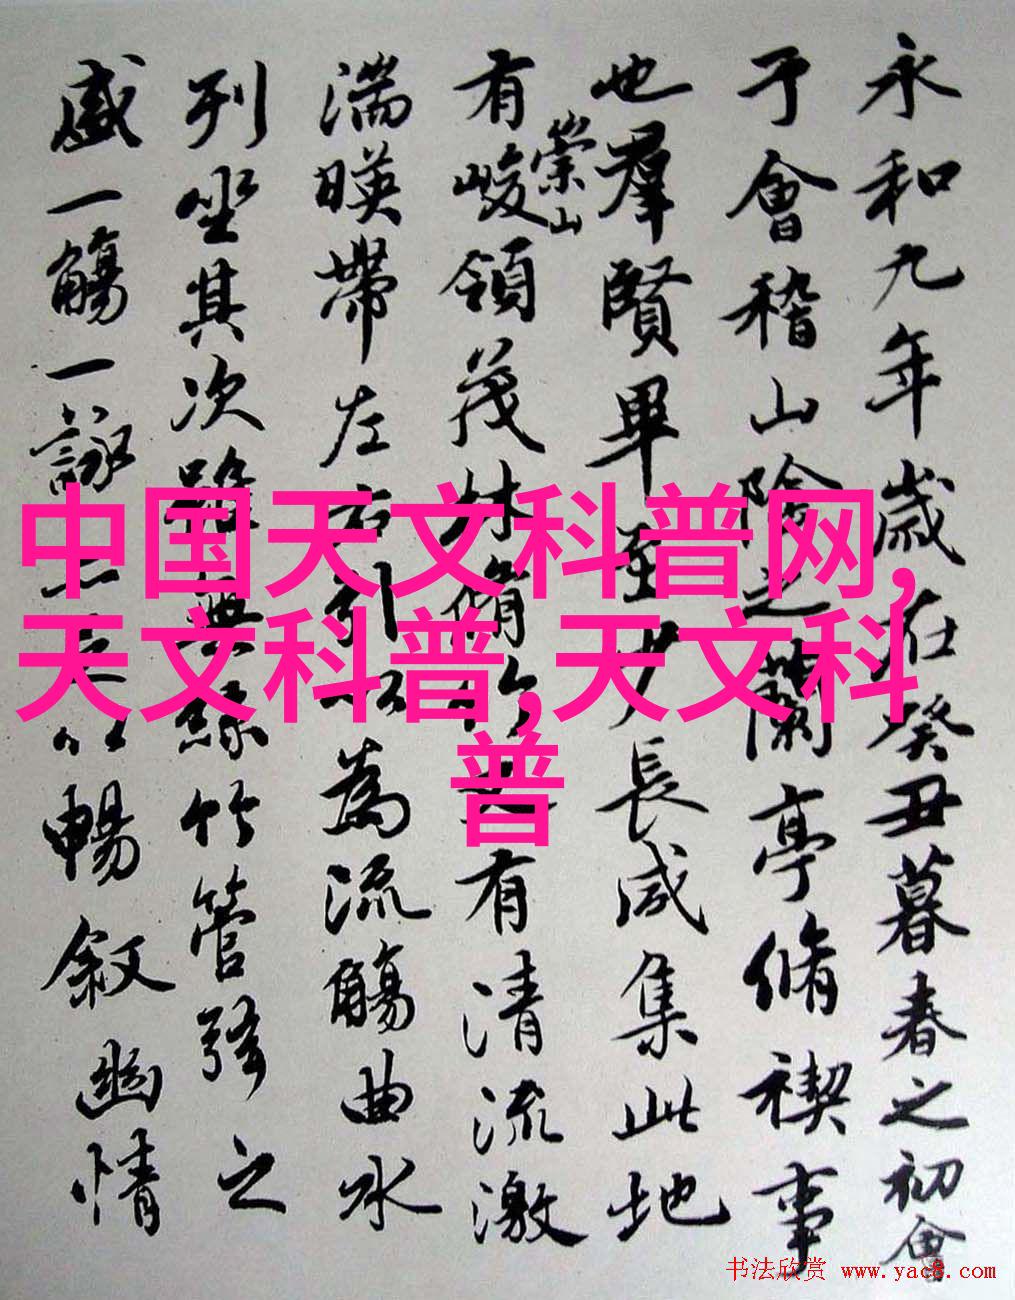 永和九年歲在癸丑暮春之初會
于會稽山陰之蘭亭脩禊事
也羣賢畢至少長咸集此地
有崇山峻領茂林脩竹又有清流激
湍暎帶左右引以為流觴曲水
列坐其次雖無絲竹管弦之
盛一觴一詠亦足以暢敘幽情
中国天文科普网,
天文科普,天文科
普
书法欣赏 www.yac8.com